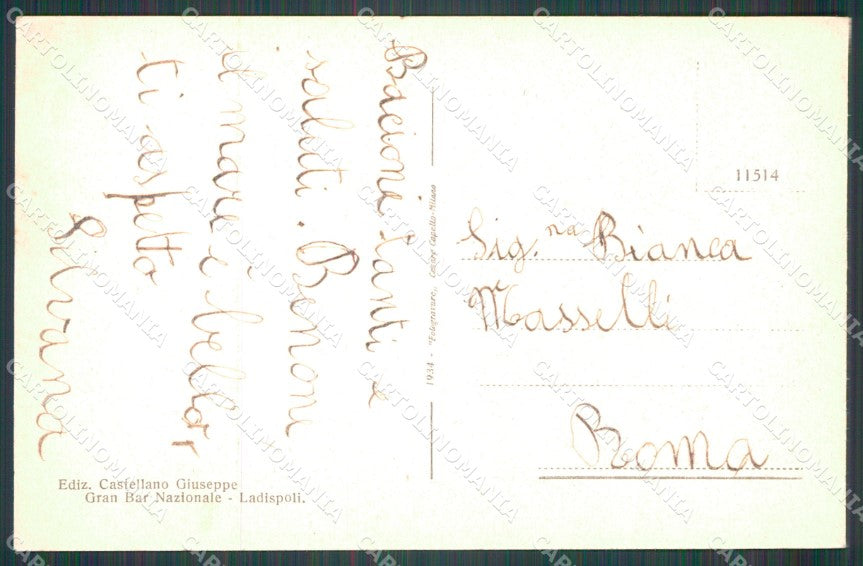 Bacioni tanti e
saluti. Benone
il mare è bello
ti aspetto
Silvana
Ediz. Castellano Giuseppe
Gran Bar Nazionale - Ladispoli.
1934 - "Fotogravure,, Cesare Capello-Milano
11514
Sig.na Bianca
Masselli
Roma
CARTOLINOMANIA